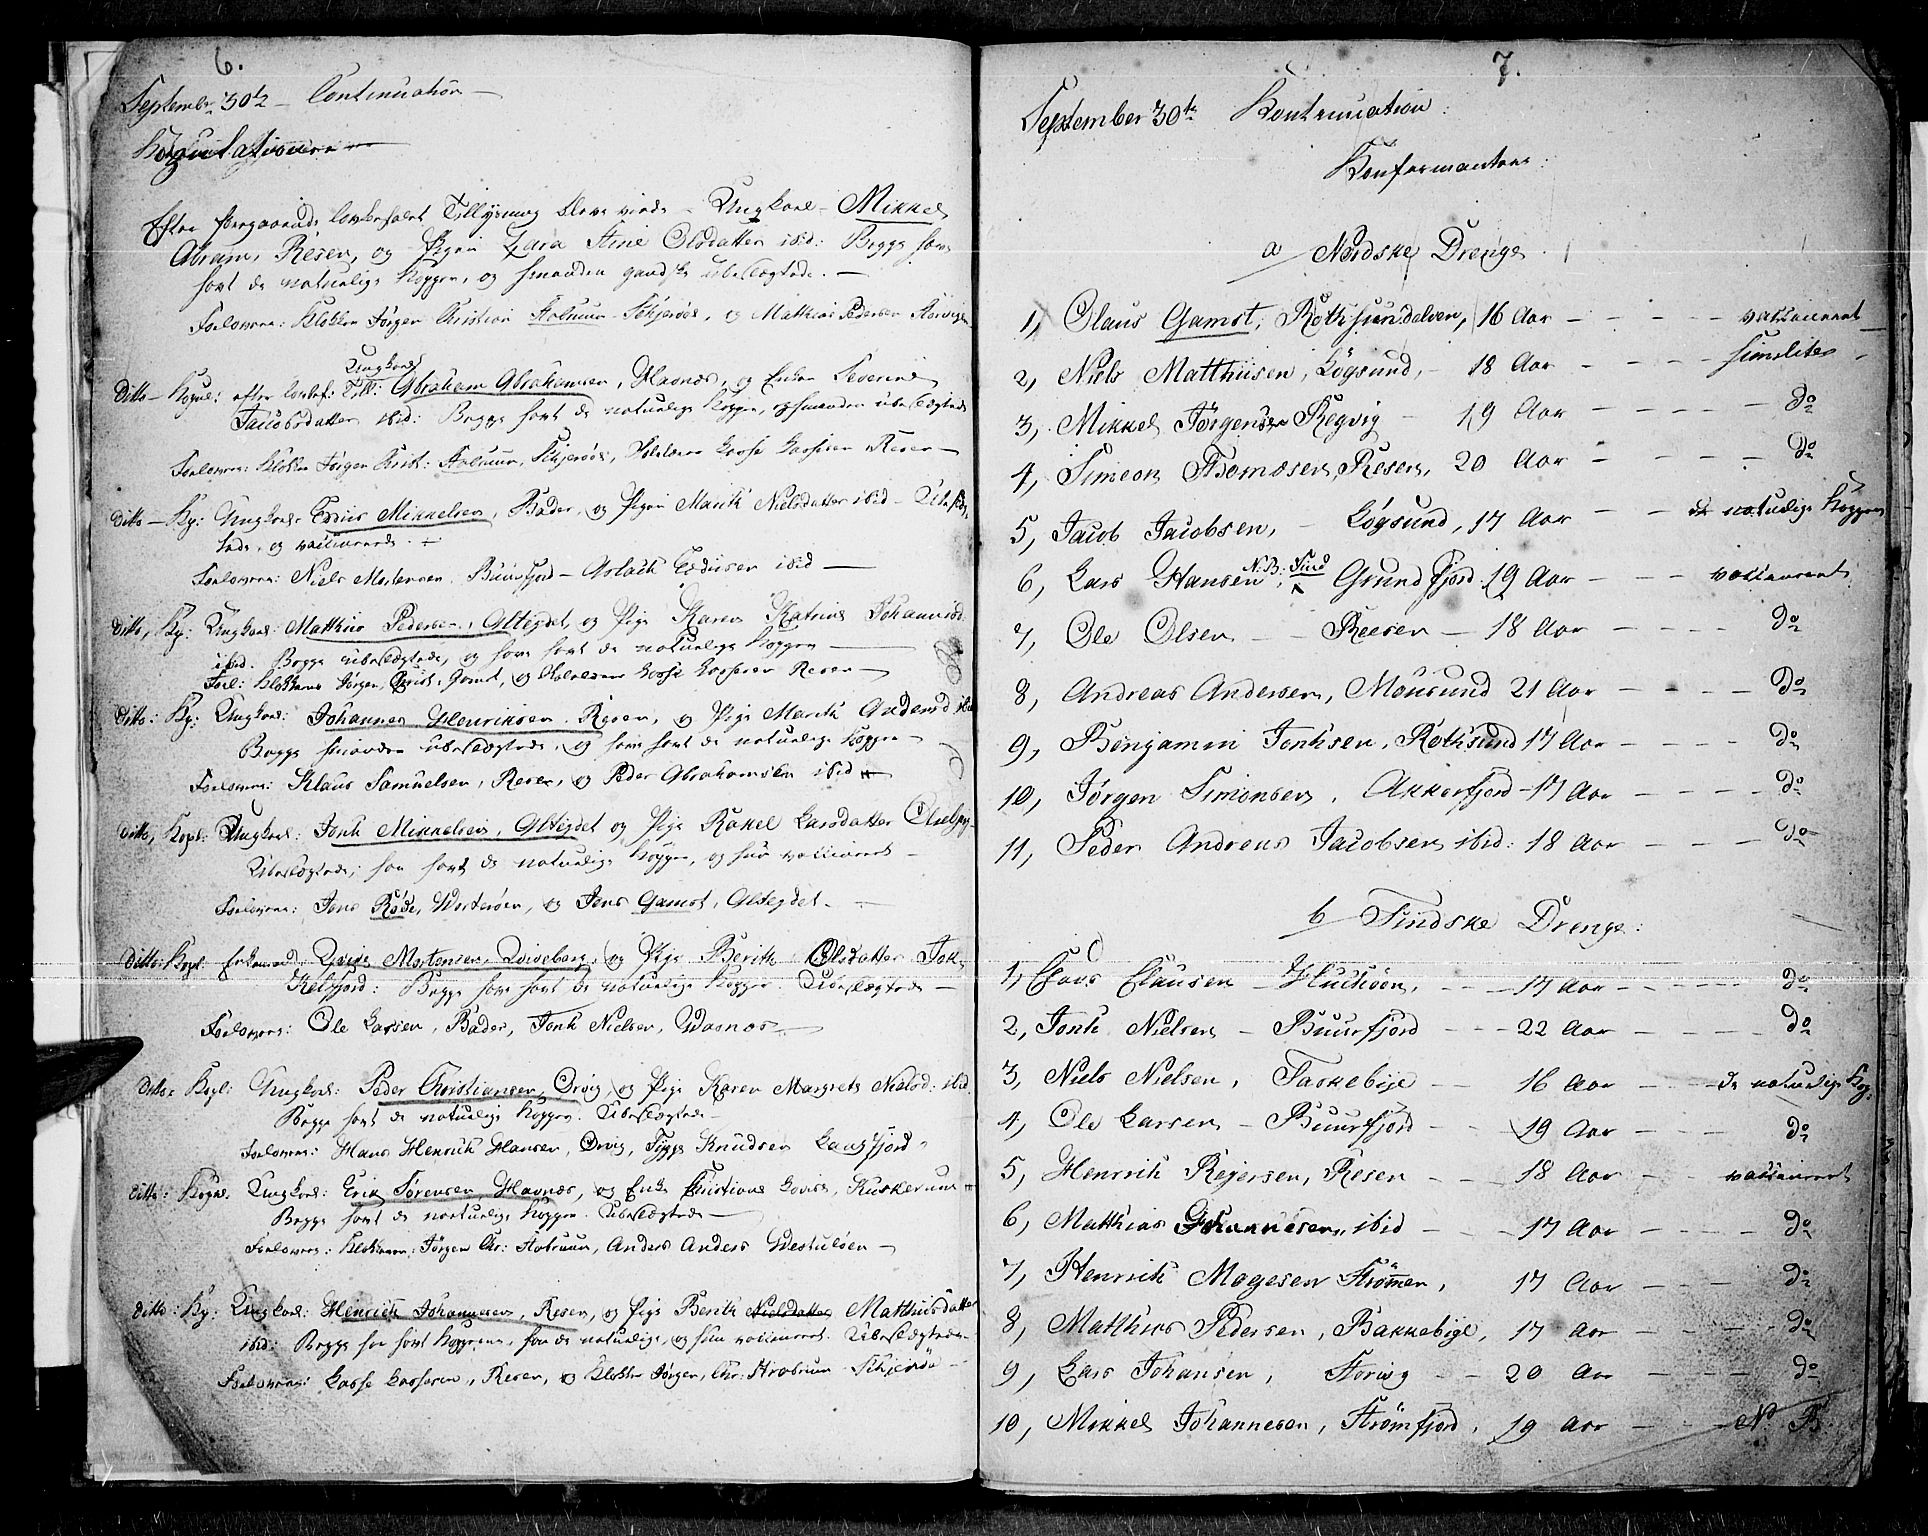 6.
September 30te – Continuation –
Kopulationer
Efter foregaaende lovbefalet Tillysning bleve viede – Ungkarl – Mikkel
Abram, Reisen, og Pigen Zara Stine Olsdatter ibid: Begge have
havt de naturlige Kopper, og hinanden ganske ubeslægtede. –
Forlovere: Klokker Jørgen Christian Holmun Skjervøe, og Mathias Pedersen
Ungkarl
Ditto – Kopul: efter lovbef: Till: Abraham Abrahamsen, Havnæs, og Enken Severine
Jacobsdatter ibid: Begge havt de naturlige Kopper, og hinanden ubeslægtede
Forlovere: Klokker Jørgen Christ: Holmun, Skjervøe, Lasse Lassesen Reisen –
Ditto – Ky: Ungkarl Mikkelsen, Bader, og Pigen Marith Nielsdatter ibid –
og vaccinerede. –
Forlovere: Niels Mortensen, Buurfjord – Aslach ibid –
Ditto, Ky: Ungkarl: Matthias Pedersen, Alteydet, og Pige Karen Katrine Johannisd.
ibid. Begge ubeslægtede, og have havt de naturlige Kopper –
Forl: Klokkeren Jørgen Christ: Gamst, og Lasse Lassesen Reisen –
Ditto: Ky: Ungkarl: Johannes Henriksen Reisen, og Pige Marith Andersd ibid
Begge hinanden ubeslægtede, og have havt de naturlige Kopper –
Forlovere: Klaus Samuelsen, Reisen, og Peder Abrahamsen ibid –
Ditto, Kopl: Ungkarl: Jonh Mikkelsen, Alteydet og Pige Rakel Larsdatter
Ubeslægtede; han havt de naturlige Kopper, og hun vaccineret –
Forlovere: Jens Røde, Vorterøen, og Jens Gamst, Alteydet –
Ditto: Kopl. Enkemand Mortensen, og Pige Berith Olsdatter Jok-
Kelsfjord: Begge have havt de naturlige Kopper. Ubeslægtede –
Forlovere: Ole Larsen, Bader, Jonh Nielsen,
Ditto: Kopl: Ungkarl: Peder Christiansen Orvig, og Pige Karen Margrete Nielsd: ibid.
Begge havt de naturlige Kopper. Ubeslægtede –
Forlovere: Hans Henrich Hansen, Orvig, Knudsen Langfjord
Ditto: Kopul. Ungkarl: Erik Sørensen, Havnæs, og Enke Kristiane
Begge havt de naturlige Kopper. Ubeslægtede –
Forlovere: Klokkeren: Jørgen Chr: Holmun, Anders Anders
Ditto: Ky: Ungkarl: Henrich Johannesen, Reisen, og Pige Berith Nielsdatter Matthisdatter
ibid: Begge har havt Kopperne, han de naturlige, og hun vaccineret. Ubeslægtede
Forlovere: Lasse Lassesen, Reisen, og Klokker Jørgen, Chr: Skjervøe –
7.
September 30te Kontinuation:
Konfirmanter:
a Nordske Drenge.
1, Olaus Gamst, Rothsundelven, 16 Aar – – – – vaccineret
2, Niels Matthiisen, Løgsund, – 18 Aar – – – similiter
3, Mikkel Jørgensen Regvig – 19 Aar – – – – do
4, Simeon Thomæsen, Reisen, 20 Aar – – – – do
5, Jacob Jacobsen, – Løgsund, 17 Aar – – de naturlige Kopper
6, Lars Hansen N.B: Find Grundfjord. 19 Aar – – – vaccineret.
7, Ole Olsen – – Reisen – 18 Aar – – – – do
8, Andreas Andersen, Mousund 21 Aar – – – – do
9, Benjamin Jonhsen, Rothsund 17 Aar – – – – do
10, Jørgen Simonsen, Akkerfjord – 17 Aar – – – – do
11, Peder Andreas Jacobsen ibid: 18 Aar – – – – do
b Findske Drenge:
1, Clausen – – – – 17 Aar – – – – do
2, Jonh Nielsen – Buurfjord – – – 22 Aar – – – – do
3, Niels Nielsen, Taskebye – – 16 Aar – – – de naturlige Kop:
4, Ole Larsen – Buurfjord – – 19 Aar – – – – do
5, Henrich Rejersen, Reisen – – 18 Aar – – – vaccineret
6, Matthias Johannesen, ibid – – 17 Aar – – – – do
7, Henrich Mogesen Strømen, 17 Aar – – – – do
8, Matthias Pedersen, Bakkebye, 17 Aar – – – – do
9, Lars Johansen, Storvig – – 20 Aar – – – – do
10, Mikkel Johannesen, Strømfjord, 19 Aar – – – N. B.